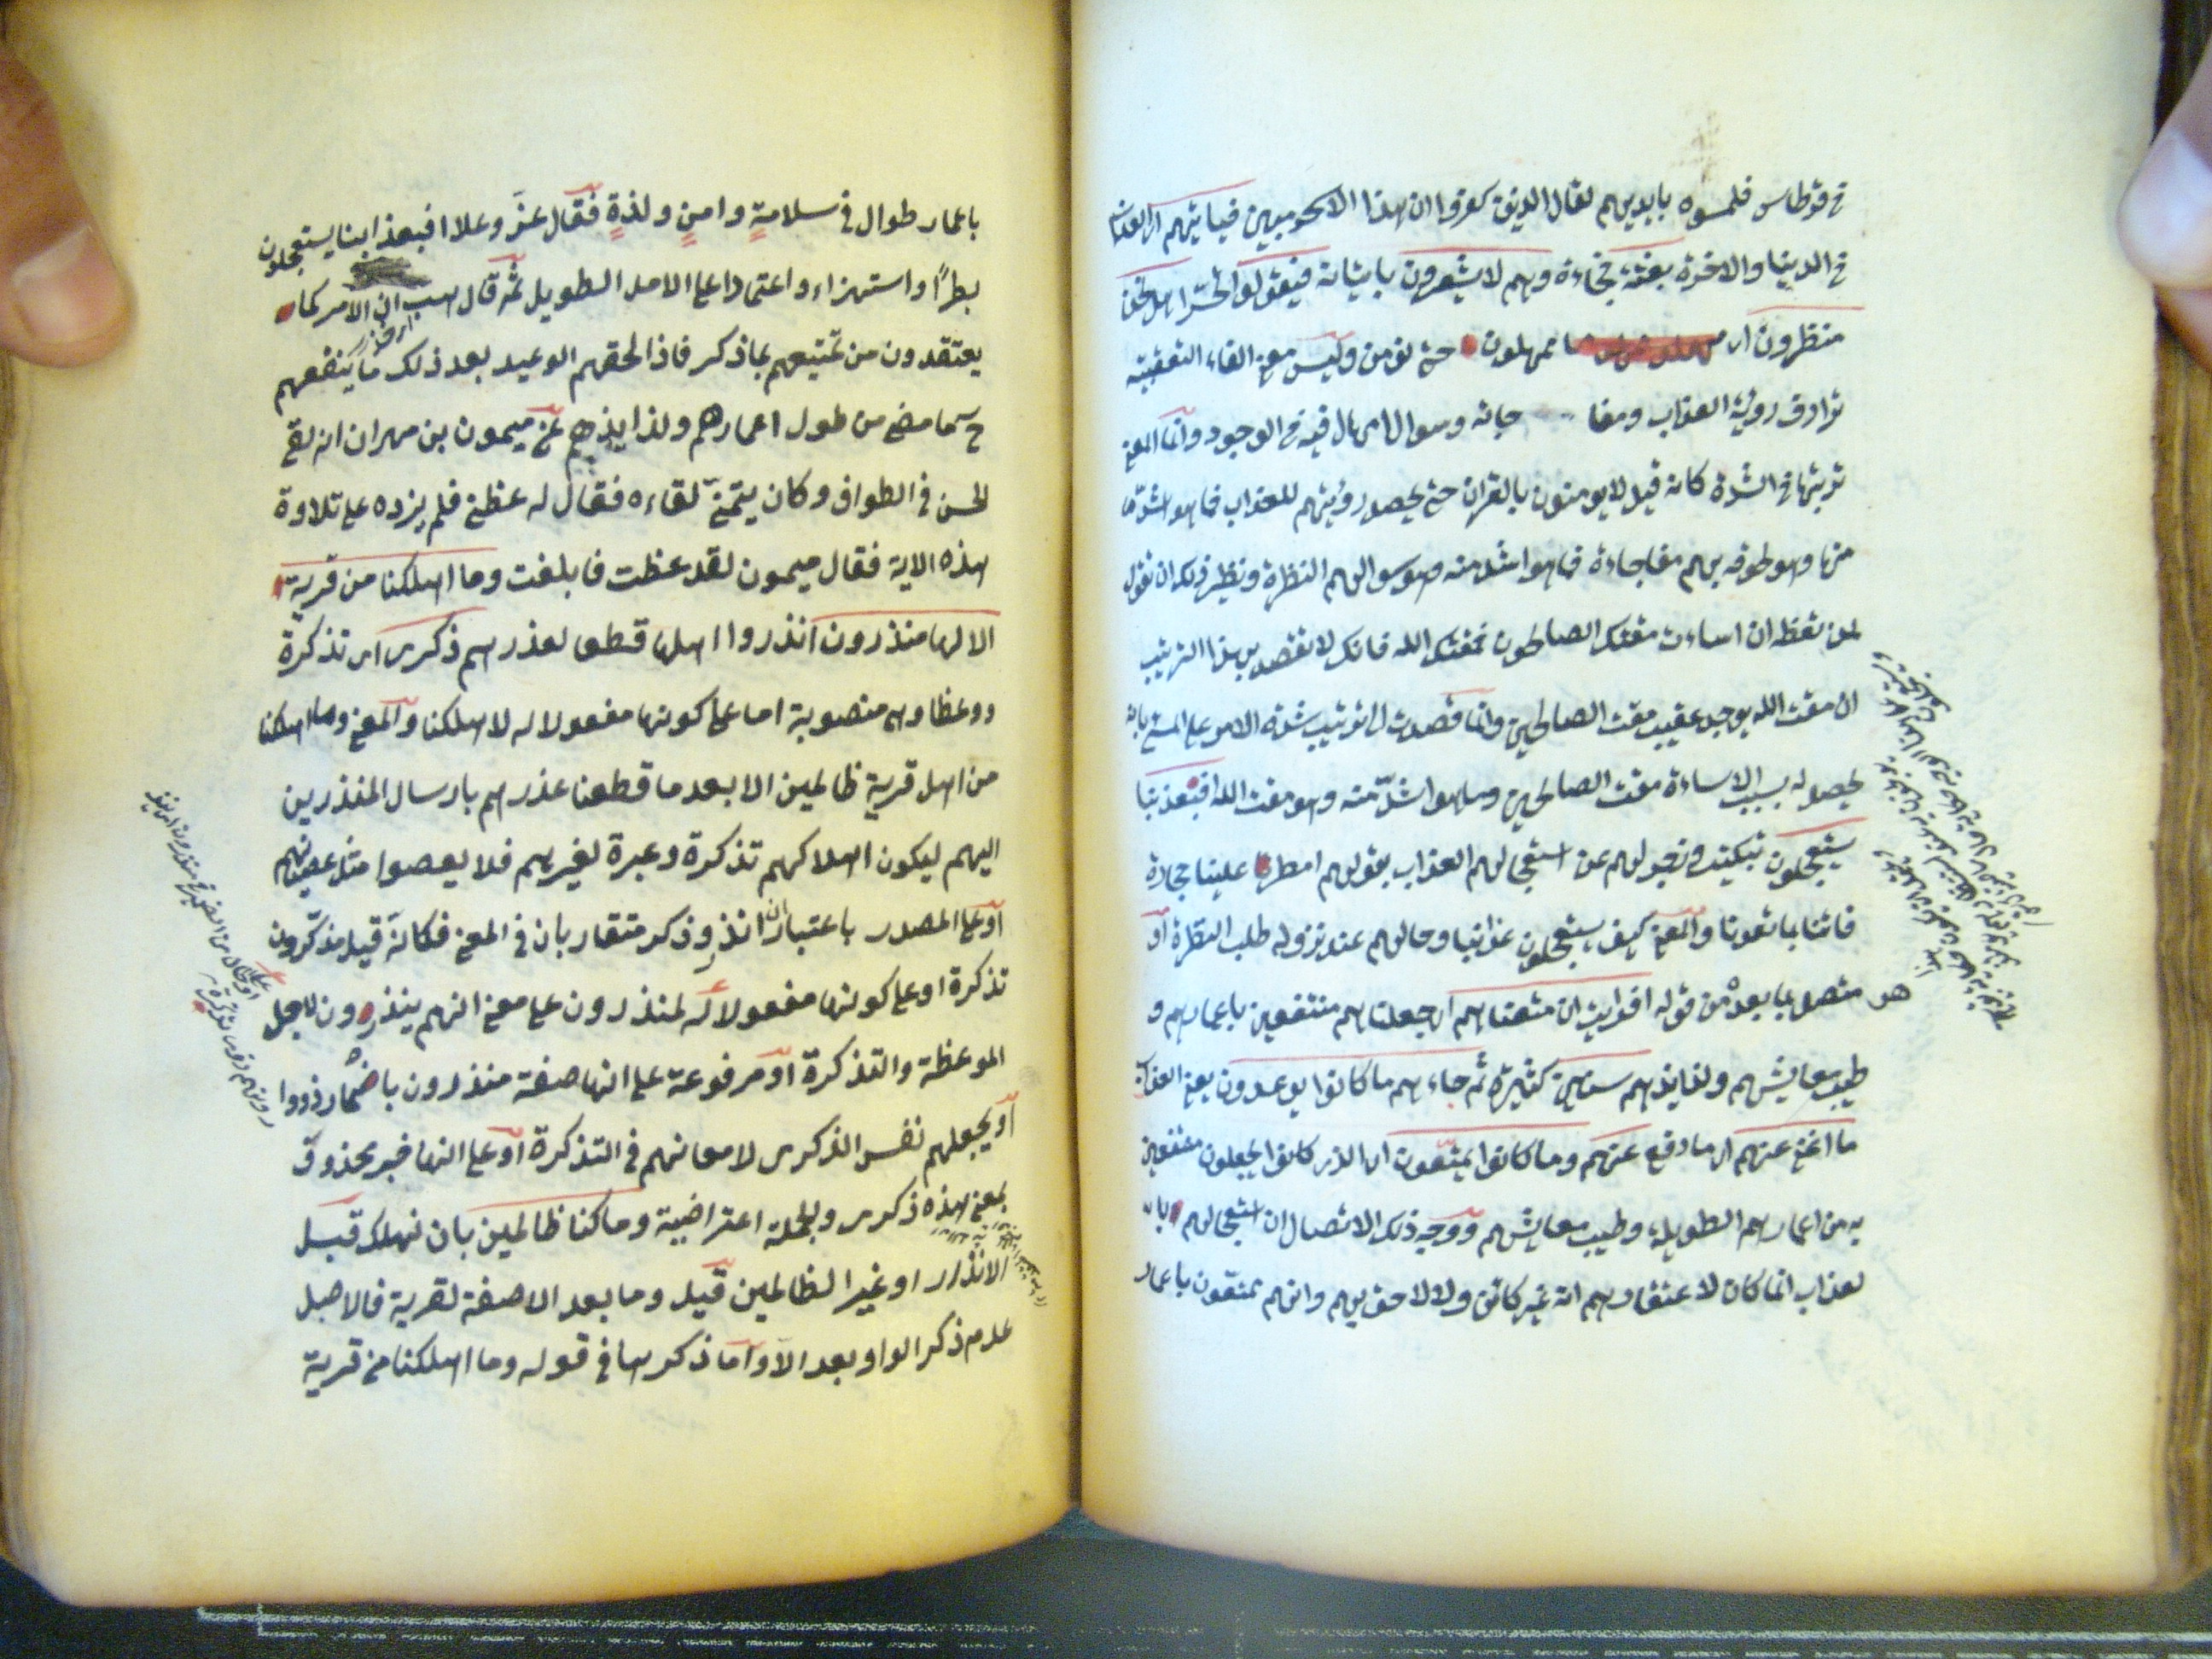 في قرطاس فلمسوه بايديهم لقال الذين كفروا ان هذا الا سحر مبين فياتيهم اى العذاب
في الدينا والاخرة بغتة فجاءة وهم لا يشعرون باتيانه فيقولوا تحسّرا هل نحن
منظرون اى ممهلون حتى نؤمن وليس معنى الفاء التعقيبية
ترادف روية العذاب ومفاجاته وسوال الامهال فيه في الوجود وانما المعنى
ترتبها في الشدة كانه قيل لا يومنون بالقران حتى يحصل رؤيتهم للعذاب فما هو اشدّ
منها وهو لحوقه بهم مفاجاءة فما هو اشد منه وهو سوالهم النظرة ونظير ذلك ان تقول
لمن تعظه ان اساءت مقتك الصالحون فمقتك الله فانك لا تقصد بهذا الترتيب
ان مقت الله يوجد عقيب مقت الصالحين وانما قصدت الى ترتيب شدة الامر على المسئ بانه
يحصل له بسبب الاساءة مقت الصالحين وما هو اشدّ منه وهو مقت الله افبعذابنا
يستعجلون تبكيت وتجهيل لهم عن استعجالهم العذاب بقولهم امطر علينا حجارة
فاتنا بما تعدنا والمعنى كيف يستعجلون عذابنا وحالهم عند نزوله طلب النظرة او
هو متصل بما بعده من قوله افرايت ان متعناهم اى جعلناهم منتفعين باعمارهم و
طيب معايشهم ولذايذهم سنين كثيرة ثم جاءهم ما كانوا يوعدون يعنى العذاب
ما اغنى عنهم اى ما دفع عنهم وما كانوا يمتعون اى الذى كانوا يجعلون منتفعين
به من اعمارهم الطويلة وطيب معايشهم ووجه ذلك الاتصال ان استعجالهم با
لعذاب انما كان لاعتقادهم انه غير كائن ولا لاحق بهم وانهم يمتعون باعمار
باعمار طوال في سلامةٍ وامنٍ ولذةٍ فقال عزّ وعلا افبعذابنا يستعجلون
بطرًا واستهزاء واعتمادا على الامل الطويل ثم قال هب ان الامر كما
يعتقدون من تمتيعهم بما ذكر فاذا لحقهم الوعيد بعد ذلك ما ينفعهم
ح ما مضى من طول اعمارهم ولذايذهم عن ميمون بن مهران انه لقى
الحسن في الطواف وكان يتمنى لقاءه فقال له عظنى فلم يزده على تلاوة
هذه الاية فقال ميمون لقد عظت فابلغت وما اهلكنا من قرية
الا لها منذرون انذروا اهلها قطعا لعذرهم ذكرى اى تذكرة
ووعظا وهى منصوبة اما على كونها مفعولا له لاهلكنا والمعنى وما اهلكنا
من اهل قرية ظالمين الا بعد ما قطعنا عذرهم بارسال المنذرين
اليهم ليكون اهلاكهم تذكرة وعبرة لغيرهم فلا يعصوا مثل عصيانهم
او على المصدر باعتبار ان انذر وذكر متقاربان في المعنى فكانه قيل مذكّرون
تذكرة او على كونها مفعولا له لمنذرون على معنى انهم ينذرون لاجل
الموعظة والتذكرة او مرفوعة على انها صفة منذرون باضمار ذووا
او بجعلهم نفس الذكرى لامعانهم في التذكرة او على انها خبر محذوف
بمعنى هذه ذكرى والجملة اعتراضية وما كنا ظالمين بان نهلك قبل
الانذار او غير الظالمين قيل وما بعد الا صفة لقرية فالاصل
عدم ذكر الواو بعد الا واما ذكرها في قوله وما اهلكنا من قرية